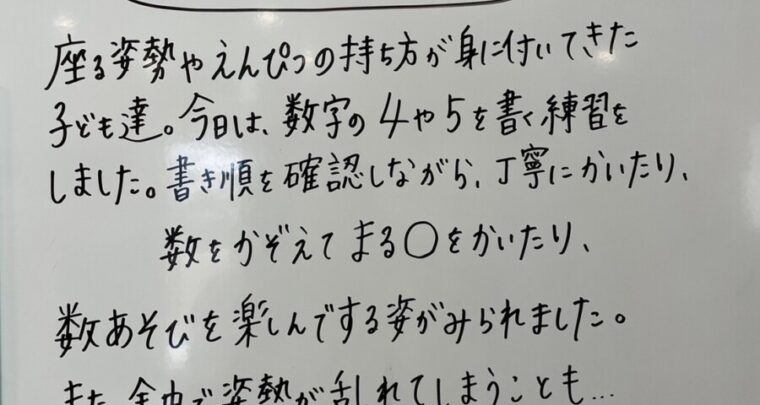 座る姿勢やえんぴつの持ち方が身に付いてきた
子ども達。今日は、数字の4や5を書く練習を
しました。書き順を確認しながら、丁寧にかいたり、
数をかぞえてまる〇をかいたり、
数あそびを楽しんでする姿がみられました。
また、途中で姿勢が乱れてしまうことも…